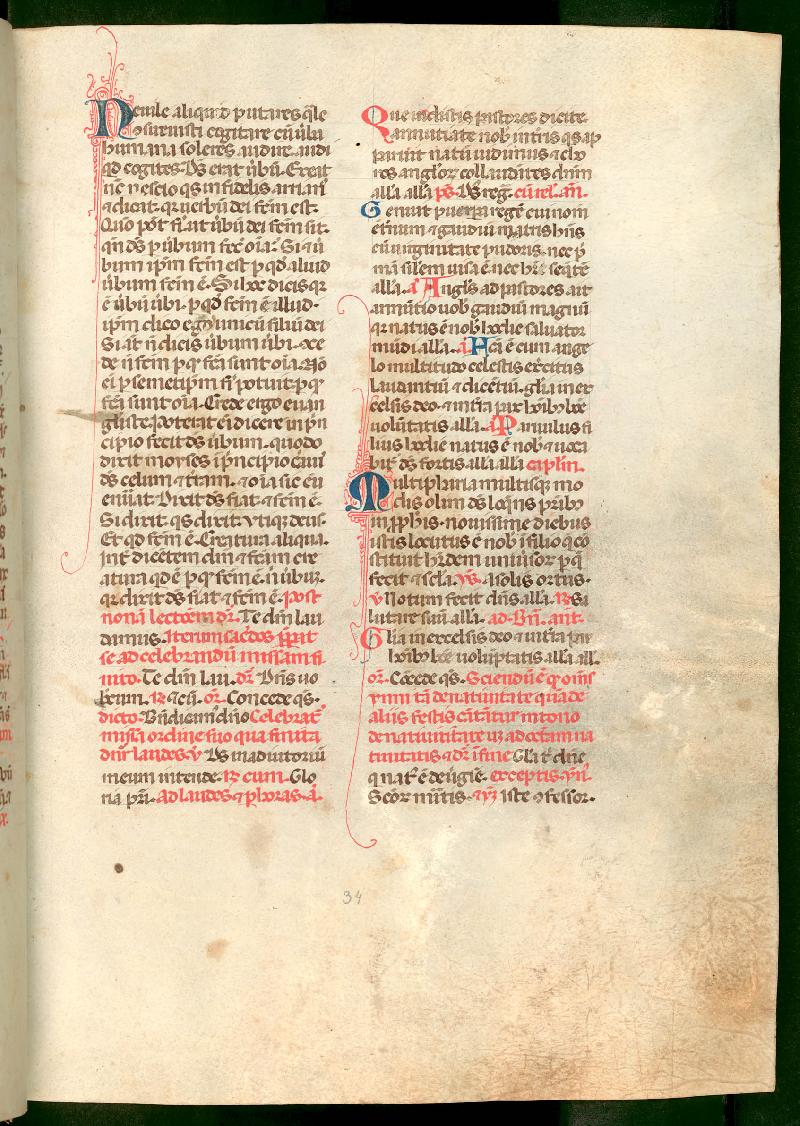 Ne uile aliquid putares q̄le
ꝯsueuisti cogitare cū ūba
humana soleres audire. audi
qd cogites. Ds̄ erat ūbū. Exeat
nē nescio qs infidelis arrian
⁊ dicat. qr ūbū dei fc̄m est.
Quō pōt fi. ut ūbū dei fc̄m sit.
qn̄ ds̄ p ūbum fec̄ oīa. Si ⁊ ū
bum ip̄m fc̄m est p qd aliud
ūbum fc̄m ē. Si hoc dicis qr
ē ūbū ūbi. p qd fc̄m ē illud.
ip̄m dico ego unicū filiū dei
Si aūt n̄ dicis ūbum ūbi. 9ce
de n̄ fc̄m p qr fc̄a sunt oīa. Nō
ei p semetip̄m fi potuit p qr
fc̄a sunt oīa. Crede ergo euan
gliste. Poterat ei dicere in p̄n
cipio fecit ds̄ ūbum. quōdo
dixit moyses ī p̄ncipio c̄auit
ds̄ celum ⁊ tr̄am. ⁊ oīa sic eū
enūat. Dixit ds̄ fiat ⁊ fc̄m ē.
Si dixit. qs dixit. vtiqz deus.
Et qd fc̄m ē. Creatura aliqua.
Int̄ dicētem dm̄ ⁊ fc̄am cre
atura qd ē p qr fc̄m ē. n̄ ūbuz.
qr dixit ds̄ fiat ⁊ fc̄m ē. post
nonā lectōem dr̄. Te dm̄ lau
damus. Iterum sac̄dos p̄parat
se ad celebrandū missam fi
nito. Te dm̄ lau. dr̄. Dn̄s uo
bcum. ℞ ⁊ cū. or̄. Concede qs.
dicto. Bn̄dicam̄ dn̄o Celebrat̄
mis̄ī ordine suo qua finita
dn̄r laudes. v̄ Ds̄ in adiutoriū
meum intende. ℞ cum. Glo
ria pr̄i. Ad laudes ⁊ p horas. a.
Que uidistis pastores dicite.
annuntiate nob̄ in tr̄is qs ap
paruit natū uidimus ⁊ cho
ros angl̄or̄ collaudātes dn̄m
all̄a all̄a ps̄. Ds̄ reg. cū rel. an̄.
Genuit puerpa regē cui nom̄
et̄num ⁊ gaudiū matris hn̄s
cū uirginitate pudoris. nec p̄
mā sil̄em uisa ē nec hr̄e seq̄tē
all̄a. a Angl̄s ad pastores ait
annūtio uob̄ gaudiū magnū
qr natus ē nob̄ hodie saluator
mūdi all̄a. a Fc̄a ē cum ange
lo multitudo celestis exc̄itus
laudantiū ⁊ dicētiū. gl̄ia in ex
celsis deo. ⁊ in tr̄a pax hoib̄ bōe
uolūtatis all̄a. a Paruulus fi
lius hodie natus ē nob̄ ⁊ uoca
bit̄ ds̄ fortis all̄a all̄a capl̄m.
Multipharia multisqz mo
dis olim ds̄ loq̄ns prīb̄
in p̄ph̄is. nouissime diebus
istis locutus ē nob̄ ī filio q̄ cō
stituit h̄edem uniūsor̄ p qr̄
fecit ⁊ sc̄la. ym̄. A solis ortus.
v̄ Notum fecit dn̄s all̄a. ℞ Sa
lutare suū all̄a. ad Bn̄. ant̄.
Glia in excelsis deo ⁊ in tr̄a pax
hoib̄ bōe uolūptatis all̄a all̄.
or̄. Cōcede qs. Sciendū ē q oms̄
ymni tā de natiuitate quā de
aliis festis cātātur in tono
de natiuitate usqz ad octam na
tiuitatis ⁊ dr̄ ī fine Gl̄a t̄ dn̄e
q nat̄ ē de uīgīe. exceptis ym̄.
Scōr̄ īn̄tis. ⁊ ym̄ Iste ꝯfessor.
34